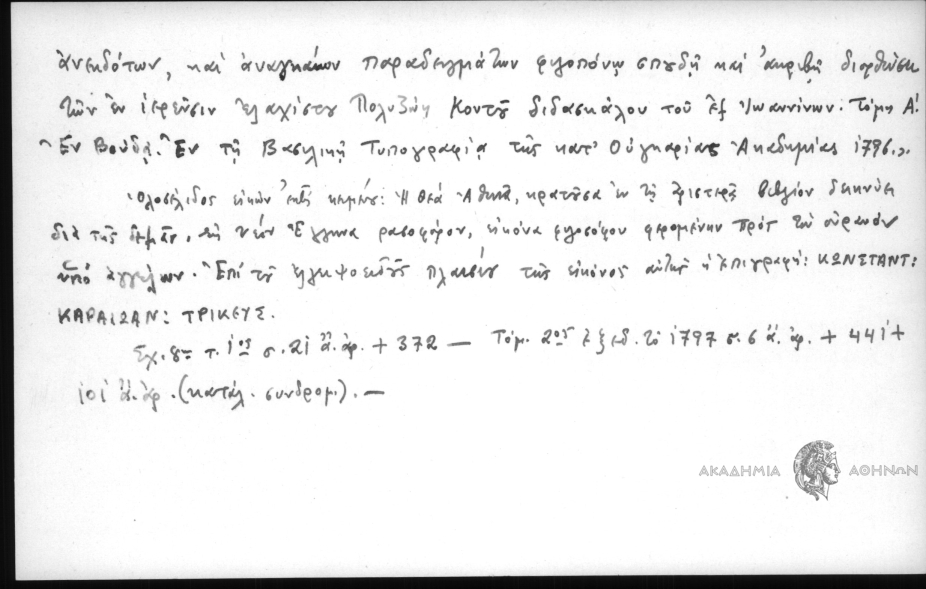 ἀνεκδότων, καὶ ἀναγκαίων παραδειγμάτων φιλοπόνῳ σπουδῇ καὶ ἀκριβῆ διορθώσει
τῶν ἐν ἱερεῦσιν ἐλαχίστου Πολυζώη Κοντοῦ διδασκάλου τοῦ ἐξ Ἰωαννίνων: Τόμῳ Α!
Ἐν Βούδᾳ. Ἐν τῇ Βασιλικῇ Τυπογραφίᾳ τῆς κατ' Οὑγκαρίας Ἀκαδημίας 1796.».
Ὁλοσέλιδος εἰκὼν ἐκτὸς κειμένου: Ἡ θεὰ Ἀθηνᾶ, κρατοῦσα ἐν τῇ ἀριστερᾷ βιβλίον δεικνύει
διὰ τῆς νέον Ἕλληνα ρασοφόρον, εἰκόνα φιλοσόφου φερομένην πρὸς τὸν οὐρανὸν
ὑπὸ ἀγγέλων. Ἐπὶ τοῦ ἐλλειψοειδοῦς πλαισίου τῆς εἰκόνος αὐτῆς ἡ ἐπιγραφή: ΚΩΝΣΤΑΝΤ:
ΚΑΡΑΙΩΑΝ: ΤΡΙΚΕΥΣ.
Σχ. 8ον τ. 1ος σ. 21 ἄ. ἀρ. + 372 — Τόμ. 2ος ἐξεδ. τὸ 1797 σ. 6 ἄ. ἀρ. + 441 +
101 ἄ. ἀρ. (κατάλ. συνδρομ.). —
ΑΚΑΔΗΜΙΑ ΑΘΗΝΩΝ